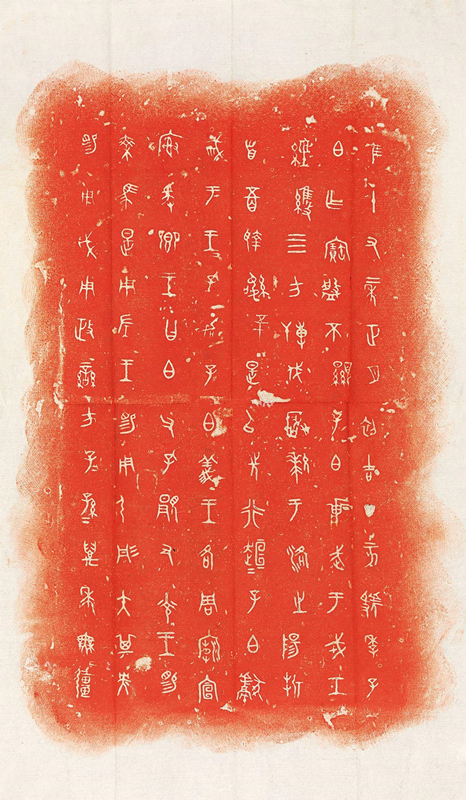 隹十又二年正月初吉丁亥虢季子
白乍寶盤不顯子白壯武于戎工
經維四方搏伐玁狁于洛之陽折
首五百執訊五十是以先行趄趄子白獻
聝于王王孔加子白義王各周廟宣
榭爰鄉王曰白父孔顯又光王睗
乘馬是用左王睗用弓彤矢其央
睗用戉用政蠻方子子孫孫萬年無疆